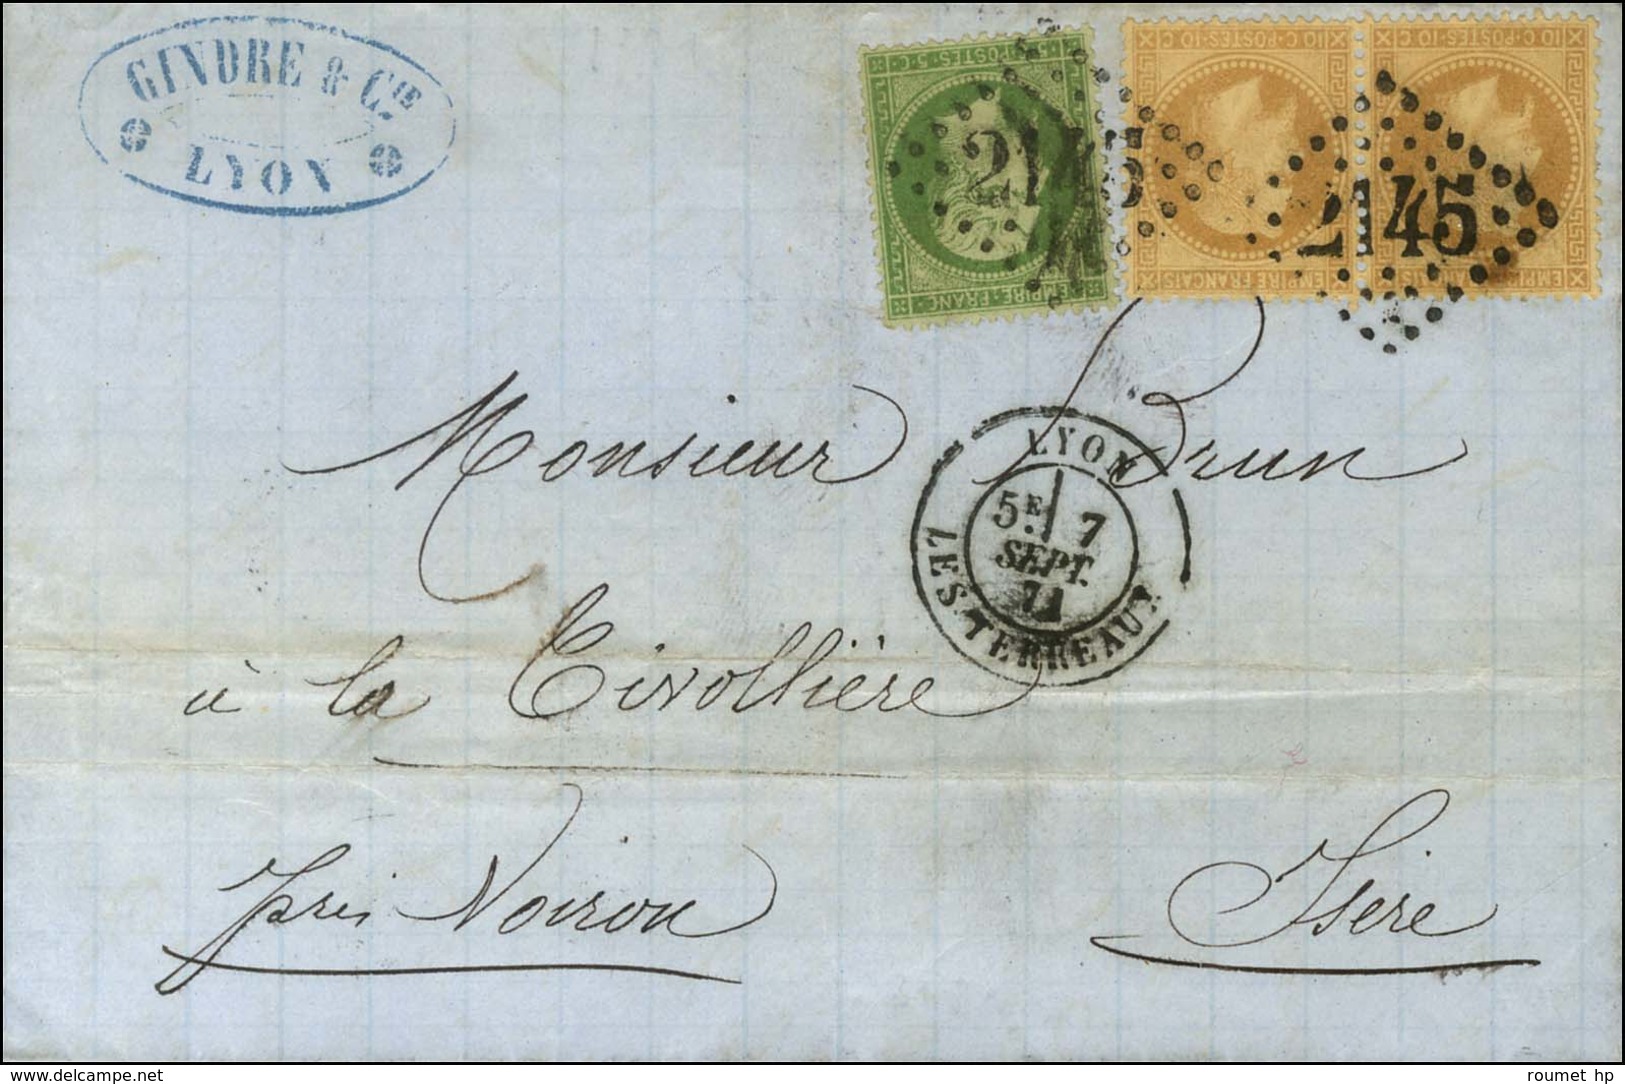 GINDRE & Cie
LYON
5 C · POSTES · 5 C
EMPIRE · FRANC
10 C · POSTES · 10 C
EMPIRE FRANÇAIS
10 C · POSTES · 10 C
EMPIRE
2145
2145
Monsieur Brun
LYON
5E 7
SEPT.
71
LES TERREAUX
à la Tivollière
près Voiron
Isère
www.delcampe.net
roumet hp